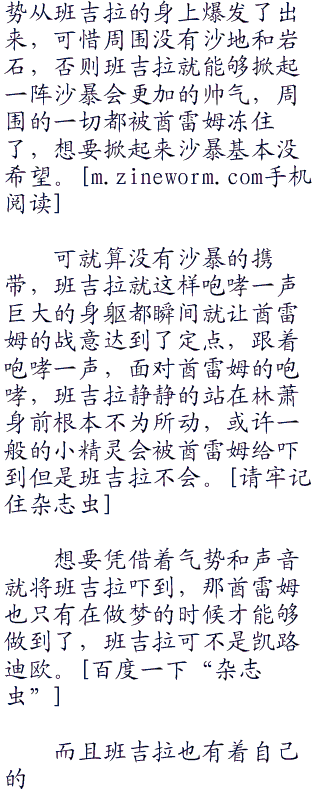 势从班吉拉的身上爆发了出
来，可惜周围没有沙地和岩
石，否则班吉拉就能够掀起
一阵沙暴会更加的帅气，周
围的一切都被酋雷姆冻住
了，想要掀起来沙暴基本没
希望。[m.zineworm.com手机
阅读]
可就算没有沙暴的携
带，班吉拉就这样咆哮一声
巨大的身躯都瞬间就让酋雷
姆的战意达到了定点，跟着
咆哮一声，面对酋雷姆的咆
哮，班吉拉静静的站在林萧
身前根本不为所动，或许一
般的小精灵会被酋雷姆给吓
到但是班吉拉不会。[请牢记
住杂志虫]
想要凭借着气势和声音
就将班吉拉吓到，那酋雷姆
也只有在做梦的时候才能够
做到了，班吉拉可不是凯路
迪欧。[百度一下“杂志
虫”]
而且班吉拉也有着自己
的